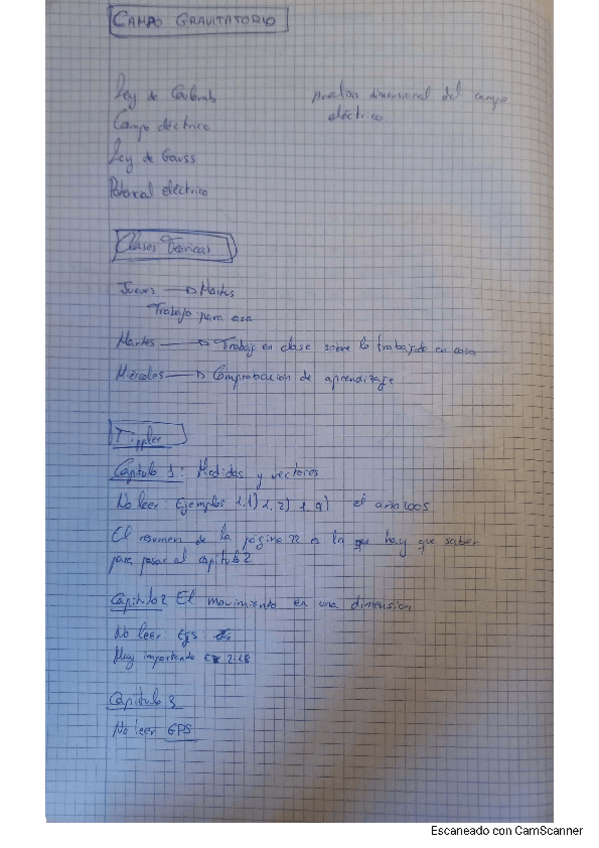 CAMPO GRAVITATORIO
Ley de Coulomb
Análisis dimensional del campo
eléctrico
Campo eléctrico
Ley de Gauss
Potencial eléctrico
Clases Teóricas
Jueves → Martes
Trabajo para casa
Martes → Trabajo en clase sobre lo trabajado en casa
Miércoles → Comprobación de aprendizaje
Tippler
Capítulo 1: Medidas y vectores
No leer: Ejemplos 1.1) 1.2) 1.9) el año 2005
El resumen de la página 22 es lo que hay que saber
para pasar al capítulo 2
Capítulo 2 El movimiento en una dimensión
No leer: Ejs:
Muy importante
Capítulo 3
No leer GPS
Escaneado con CamScanner